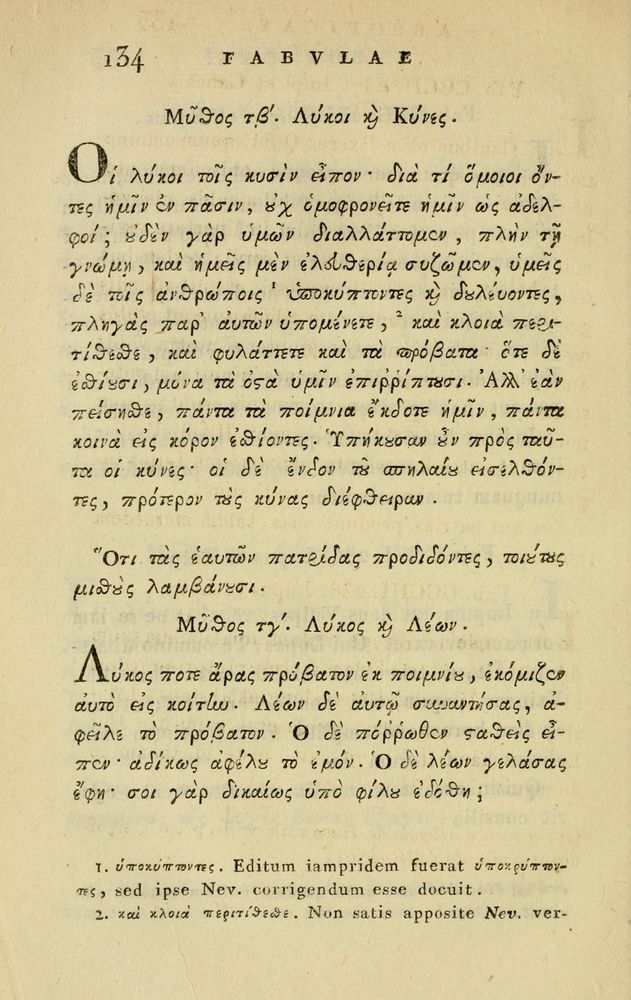 134 FABVLAE
Μῦθος τβʹ. Λύκοι ϗ Κύνες.
Οἱ λύκοι τοῖς κυσὶν εἶπον· διὰ τί ὅμοιοι ὄν-
τες ἡμῖν ἐν πᾶσιν, ȣ̓χ ὁμοφρονεῖτε ἡμῖν ὡς ἀδελ-
φοί; ȣ̓δὲν γὰρ ὑμῶν διαλλάττομεν, πλὴν τῇ
γνώμῃ, καὶ ἡμεῖς μὲν ἐλευθερίᾳ συζῶμεν, ὑμεῖς
δὲ τοῖς ἀνθρώποις ¹ ὑποκύπτοντες ϗ δȣλεύοντες,
πληγὰς παρ' αὐτῶν ὑπομένετε, ² καὶ κλοιὰ περι-
τίθεσθε, καὶ φυλάττετε καὶ τὰ πρόβατα· ὅτε δὲ
ἐσθίȣσι, μόνα τὰ ὀϛᾶ ὑμῖν ἐπιῤῥίπτȣσι. Ἀλλ' ἐὰν
πείσησθε, πάντα τὰ ποίμνια ἔκδοτε ἡμῖν, πάντα
κοινὰ εἰς κόρον ἐσθίοντες. Ὑπήκȣσαν ȣ̓͂ν πρὸς ταῦ-
τα οἱ κύνες· οἱ δὲ ἔνδον τȣ͂ σπηλαίȣ εἰσελθόν-
τες, πρότερον τȣ̀ς κύνας διέφθειραν.
Ὅτι τὰς ἑαυτῶν πατρίδας προδιδόντες, τοιȣ́τȣς
μισθȣ̀ς λαμβάνȣσι.
Μῦθος τγʹ. Λύκος ϗ Λέων.
Λύκος ποτε ἄρας πρόβατον ἐκ ποιμνίȣ, ἐκόμιζεν
αὐτὸ εἰς κοίτην. Λέων δὲ αὐτῷ συναντήσας, ἀ-
φεῖλε τὸ πρόβατον. Ὁ δὲ πόῤῥωθεν ϛαθεὶς εἶ-
πεν· ἀδίκως ἀφείλȣ τὸ ἐμόν. Ὁ δὲ λέων γελάσας
ἔφη· σοι γὰρ δικαίως ὑπὸ φίλȣ ἐδόθη;
1. ὑποκύπτοντες. Editum iampridem fuerat ὑποκρύπτον-
τες, sed ipse Nev. corrigendum esse docuit.
2. καὶ κλοιὰ περιτίθεσθε. Non satis apposite Nev. ver-